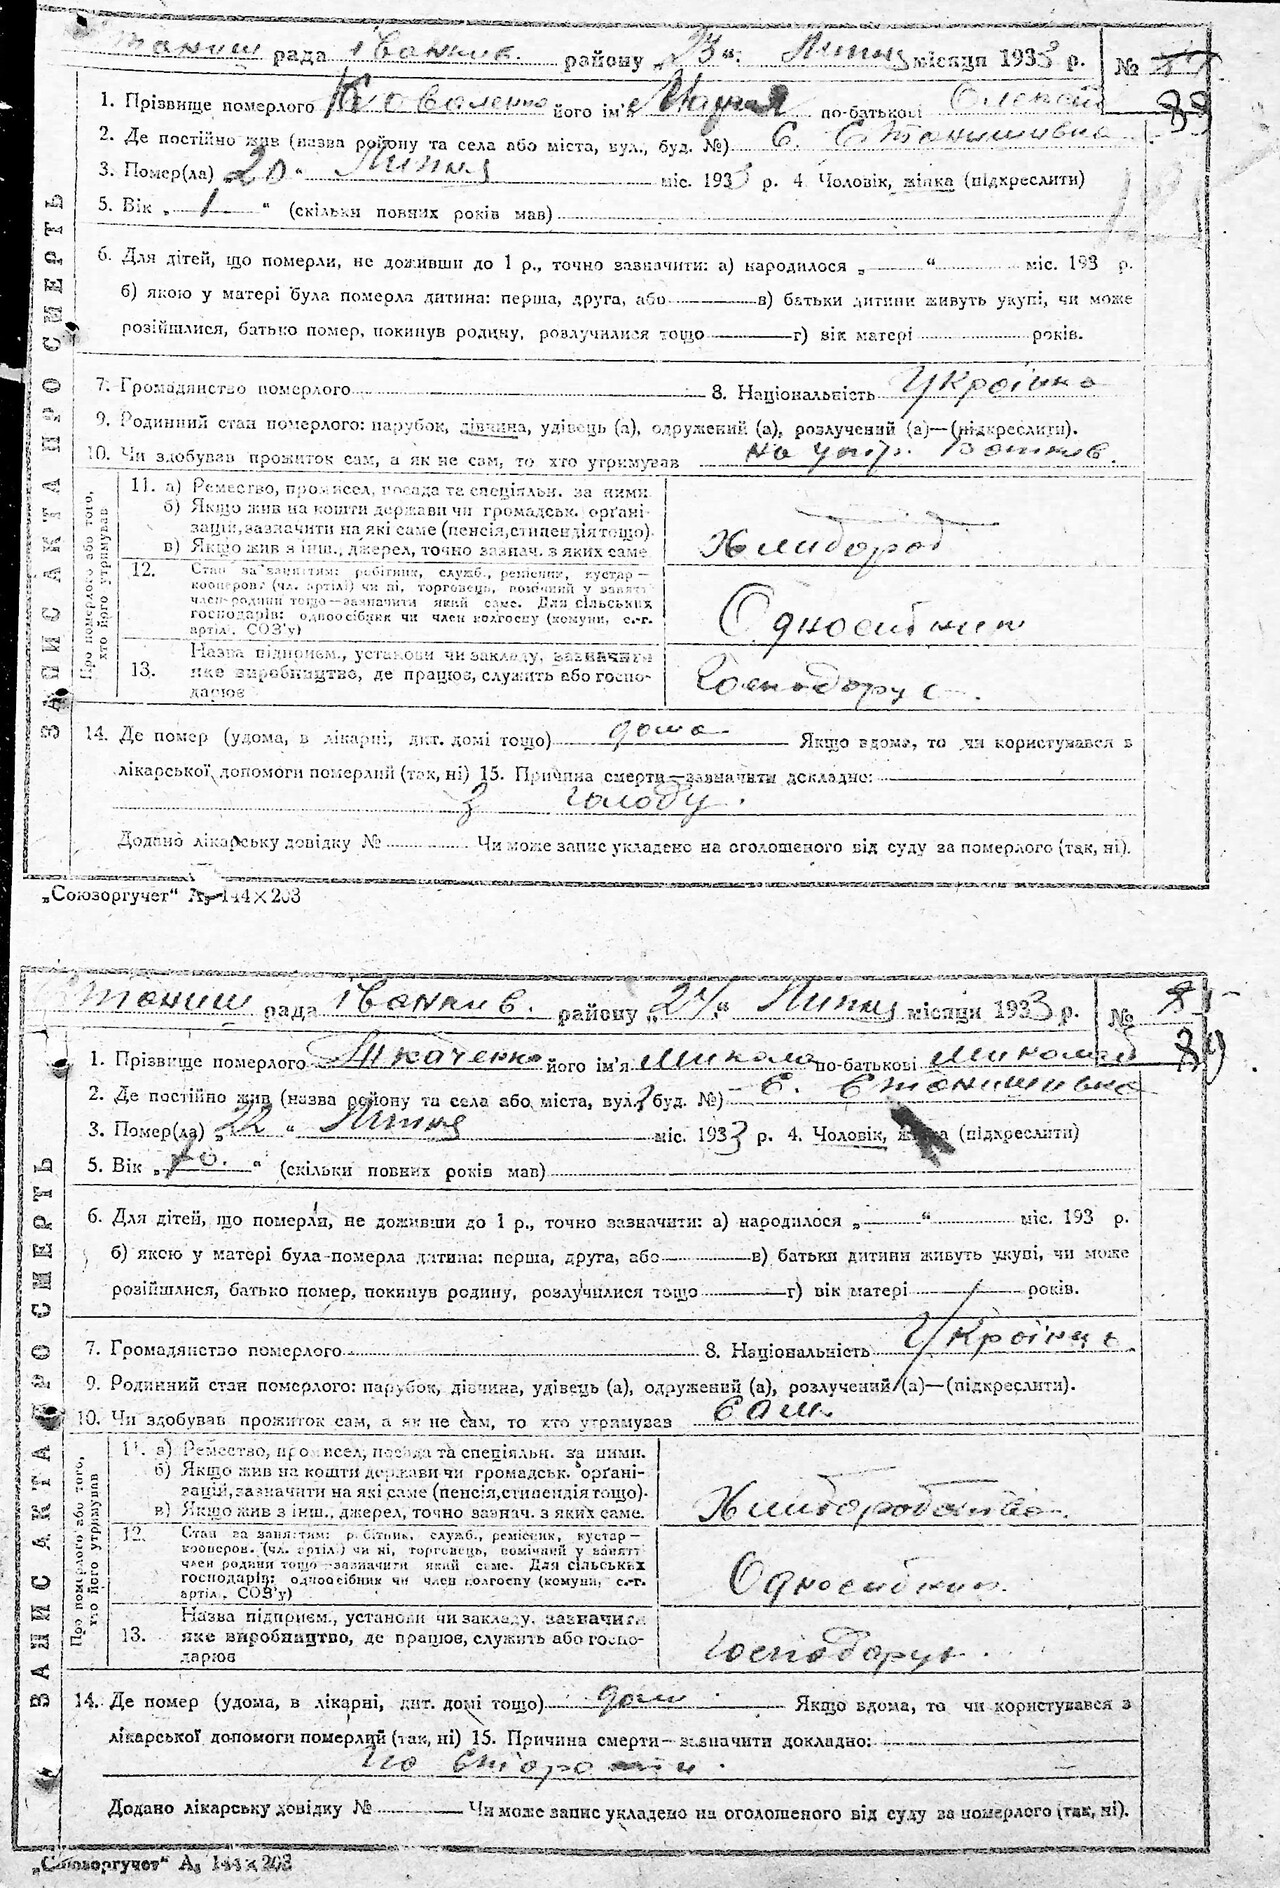 Станиш рада Іванків. району „23“ Липня місяця 1933 р. №
88
1. Прізвище померлого Коваленко його ім'я Марія по-батькові Олексій
2. Де постійно жив (назва району та села або міста, вул., буд. №) с. Станишивка
3. Помер(ла) 20 „ Липня міс. 1933 р. 4. Чоловік, жінка (підкреслити)
5. Вік „ 1 “ (скільки повних років мав)
6. Для дітей, що померли, не доживши до 1 р., точно зазначити: а) народилося „ “ міс. 193 р.
б) якою у матері була померла дитина: перша, друга, або в) батьки дитини живуть укупі, чи може
розійшлися, батько помер, покинув родину, розлучилися тощо г) вік матері років.
7. Громадянство померлого 8. Національність Українка
9. Родинний стан померлого: парубок, дівчина, удівець (а), одружений (а), розлучений (а)—(підкреслити).
10. Чи здобував прожиток сам, а як не сам, то хто утримував на утр. батьків.
ЗАПИС АКТА ПРО СМЕРТЬ
Про померлого або того, хто його утримував
11. а) Ремество, промисел, посада та спеціяльн. за ними
б) Якщо жив на кошти держави чи громадськ. органі-
зацій, зазначити на які саме (пенсія, стипендія тощо).
в) Якщо жив з інш., джерел, точно зазнач. з яких саме
Хлибороб
12. Стан за заняттям: робітник, служб., ремісник, кустар—
кооперов. (чл. артілі) чи ні, торговець, помічний у занятт
член родини тощо—зазначити який саме. Для сільських
господарів: одноосібник чи член колгоспу (комуни, с.-г.
артіл., СОЗ'у)
Односибник
13. Назва підприєм., установи чи закладу, зазначити
яке виробництво, де працює, служить або госпо-
дарює
Господарує.
14. Де помер (удома, в лікарні, дит. домі тощо) дома Якщо вдома, то чи користувався з
лікарської допомоги померлий (так, ні) 15. Причина смерти—зазначити докладно:
з голоду.
Додано лікарську довідку № Чи може запис укладено на оголошеного від суду за померлого (так, ні).
„Союзоргучет“ А₅ 144×203
Станиш рада Іванків. району „24“ Липня місяця 1933 р. № 85
89
1. Прізвище померлого Ткаченко його ім'я Микола по-батькові Миколай
2. Де постійно жив (назва району та села або міста, вул., буд. №) с. Станишивка
3. Помер(ла) „22 “ Липня міс. 1933 р. 4. Чоловік, жінка (підкреслити)
5. Вік „ 70. “ (скільки повних років мав)
6. Для дітей, що померли, не доживши до 1 р., точно зазначити: а) народилося „ “ міс. 193 р.
б) якою у матері була померла дитина: перша, друга, або в) батьки дитини живуть укупі, чи може
розійшлися, батько помер, покинув родину, розлучилися тощо г) вік матері років.
7. Громадянство померлого 8. Національність Українць.
9. Родинний стан померлого: парубок, дівчина, удівець (а), одружений (а), розлучений (а)—(підкреслити).
10. Чи здобував прожиток сам, а як не сам, то хто утримував сам.
ЗАПИС АКТА ПРО СМЕРТЬ
Про померлого або того, хто його утримував
11. а) Ремество, промисел, посада та спеціяльн. за ними.
б) Якщо жив на кошти держави чи громадськ. органі-
зацій, зазначити на які саме (пенсія, стипендія тощо).
в) Якщо жив з інш., джерел, точно зазнач. з яких саме.
12. Стан за заняттям: робітник, служб., ремісник, кустар—
кооперов. (чл. артілі) чи ні, торговець, помічний у занятт
член родини тощо—зазначити який саме. Для сільських
господарів: одноосібник чи член колгоспу (комуни, с.-г.
артіл., СОЗ'у)
Односибник.
13. Назва підприєм., установи чи закладу, зазначити
яке виробництво, де працює, служить або госпо-
дарює
Господарує.
14. Де помер (удома, в лікарні, дит. домі тощо) дом. Якщо вдома, то чи користувався з
лікарської допомоги померлий (так, ні) 15. Причина смерти—зазначити докладно:
по старости.
Додано лікарську довідку № Чи може запис укладено на оголошеного від суду за померлого (так, ні).
„Союзоргучет“ А₅ 144×203